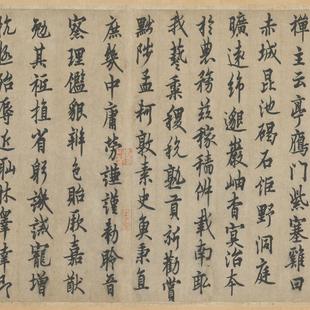 禪主云亭鴈門紫塞雞田
赤城昆池碣石鉅野洞庭
曠遠綿邈巖岫杳冥治本
於農務茲稼穡俶載南畝
我藝黍稷稅熟貢新勸賞
黜陟孟軻敦素史魚秉直
庶幾中庸勞謙謹勑聆音
察理鑑貌辯色貽厥嘉猷
勉其祗植省躬譏誡寵增
抗極殆辱近恥林皐幸即